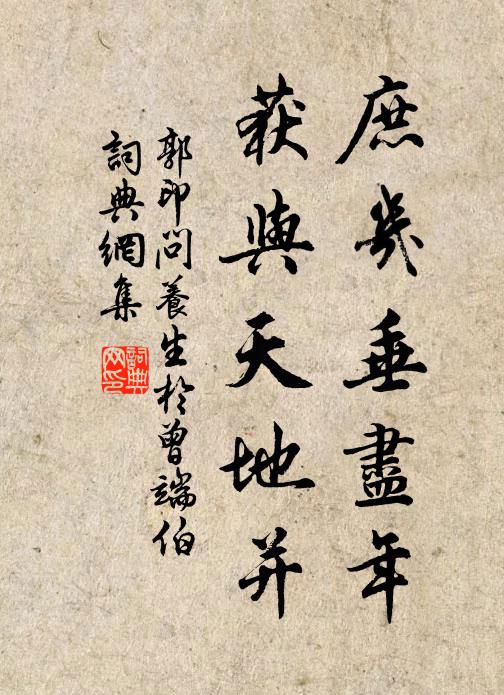 庶幾垂盡年
获與天地并
郭印問養生於曾端伯
詞典網集
詞典
网印